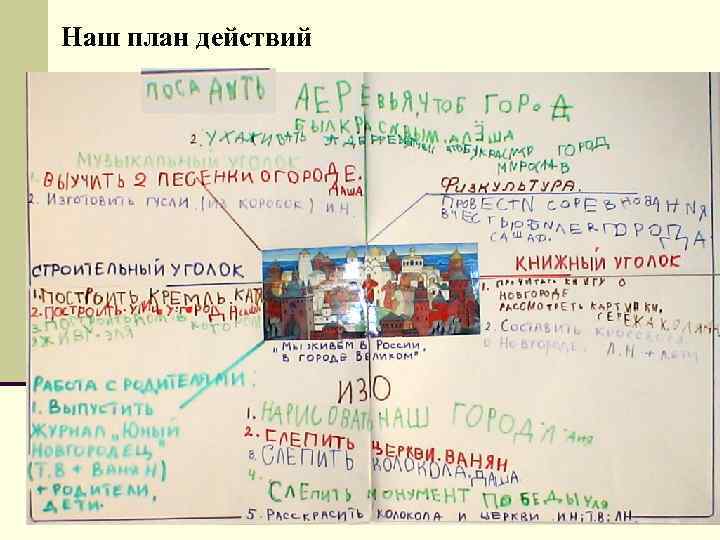 Наш план действий
ПОСАДИТЬ ДЕРЕВЬЯ, ЧТОБ ГОРОД
БЫЛ КРАСИВЫМ. АЛЁША
2. УХАЖИВАТЬ ГОРОД
МУЗЫКАЛЬНЫЙ УГОЛОК
1. ВЫУЧИТЬ 2 ПЕСЕНКИ О ГОРОДЕ.
ДАША
2. ИЗГОТОВИТЬ ГУСЛИ (ИЗ КОРОБОК) И.Н.
ФИЗКУЛЬТУРА.
ПРОВЕСТИ СОРЕВНОВАНИЯ
В ЧЕСТЬ ЮБИЛЕЯ ГОРОДА
САША
СТРОИТЕЛЬНЫЙ УГОЛОК
1. ПОСТРОИТЬ КРЕМЛЬ. КАТЯ
2. ПОСТРОИТЬ УЛИЦУ ГОРОДА
3. ПОСТРОИТЬ ДОМ В КОТОРОМ
Я ЖИВУ
КНИЖНЫЙ УГОЛОК
1. ПРОЧИТАТЬ КНИГУ О
НОВГОРОДЕ
РАССМОТРЕТЬ КАРТИНКИ.
СЕРЕЖА КОЛЯ
2. СОСТАВИТЬ КРОССВОРД
О НОВГОРОДЕ. Л.Н + ДЕТИ
„МЫ ЖИВЁМ В РОССИИ,
В ГОРОДЕ ВЕЛИКОМ"
РАБОТА С РОДИТЕЛЯМИ:
1. ВЫПУСТИТЬ
ЖУРНАЛ „ЮНЫЙ
НОВГОРОДЕЦ"
(Т.В + ВАНЯ Н)
+ РОДИТЕЛИ,
ДЕТИ.
ИЗО
1. НАРИСОВАТЬ НАШ ГОРОД
2. СЛЕПИТЬ ЦЕРКВИ. ВАНЯ Н
3. СЛЕПИТЬ КОЛОКОЛА. ДАША
4. СЛЕПИТЬ МОНУМЕНТ ПОБЕДЫ УЛЯ
5. РАССКРАСИТЬ КОЛОКОЛА И ЦЕРКВИ И.Н; Т.В; Л.Н.